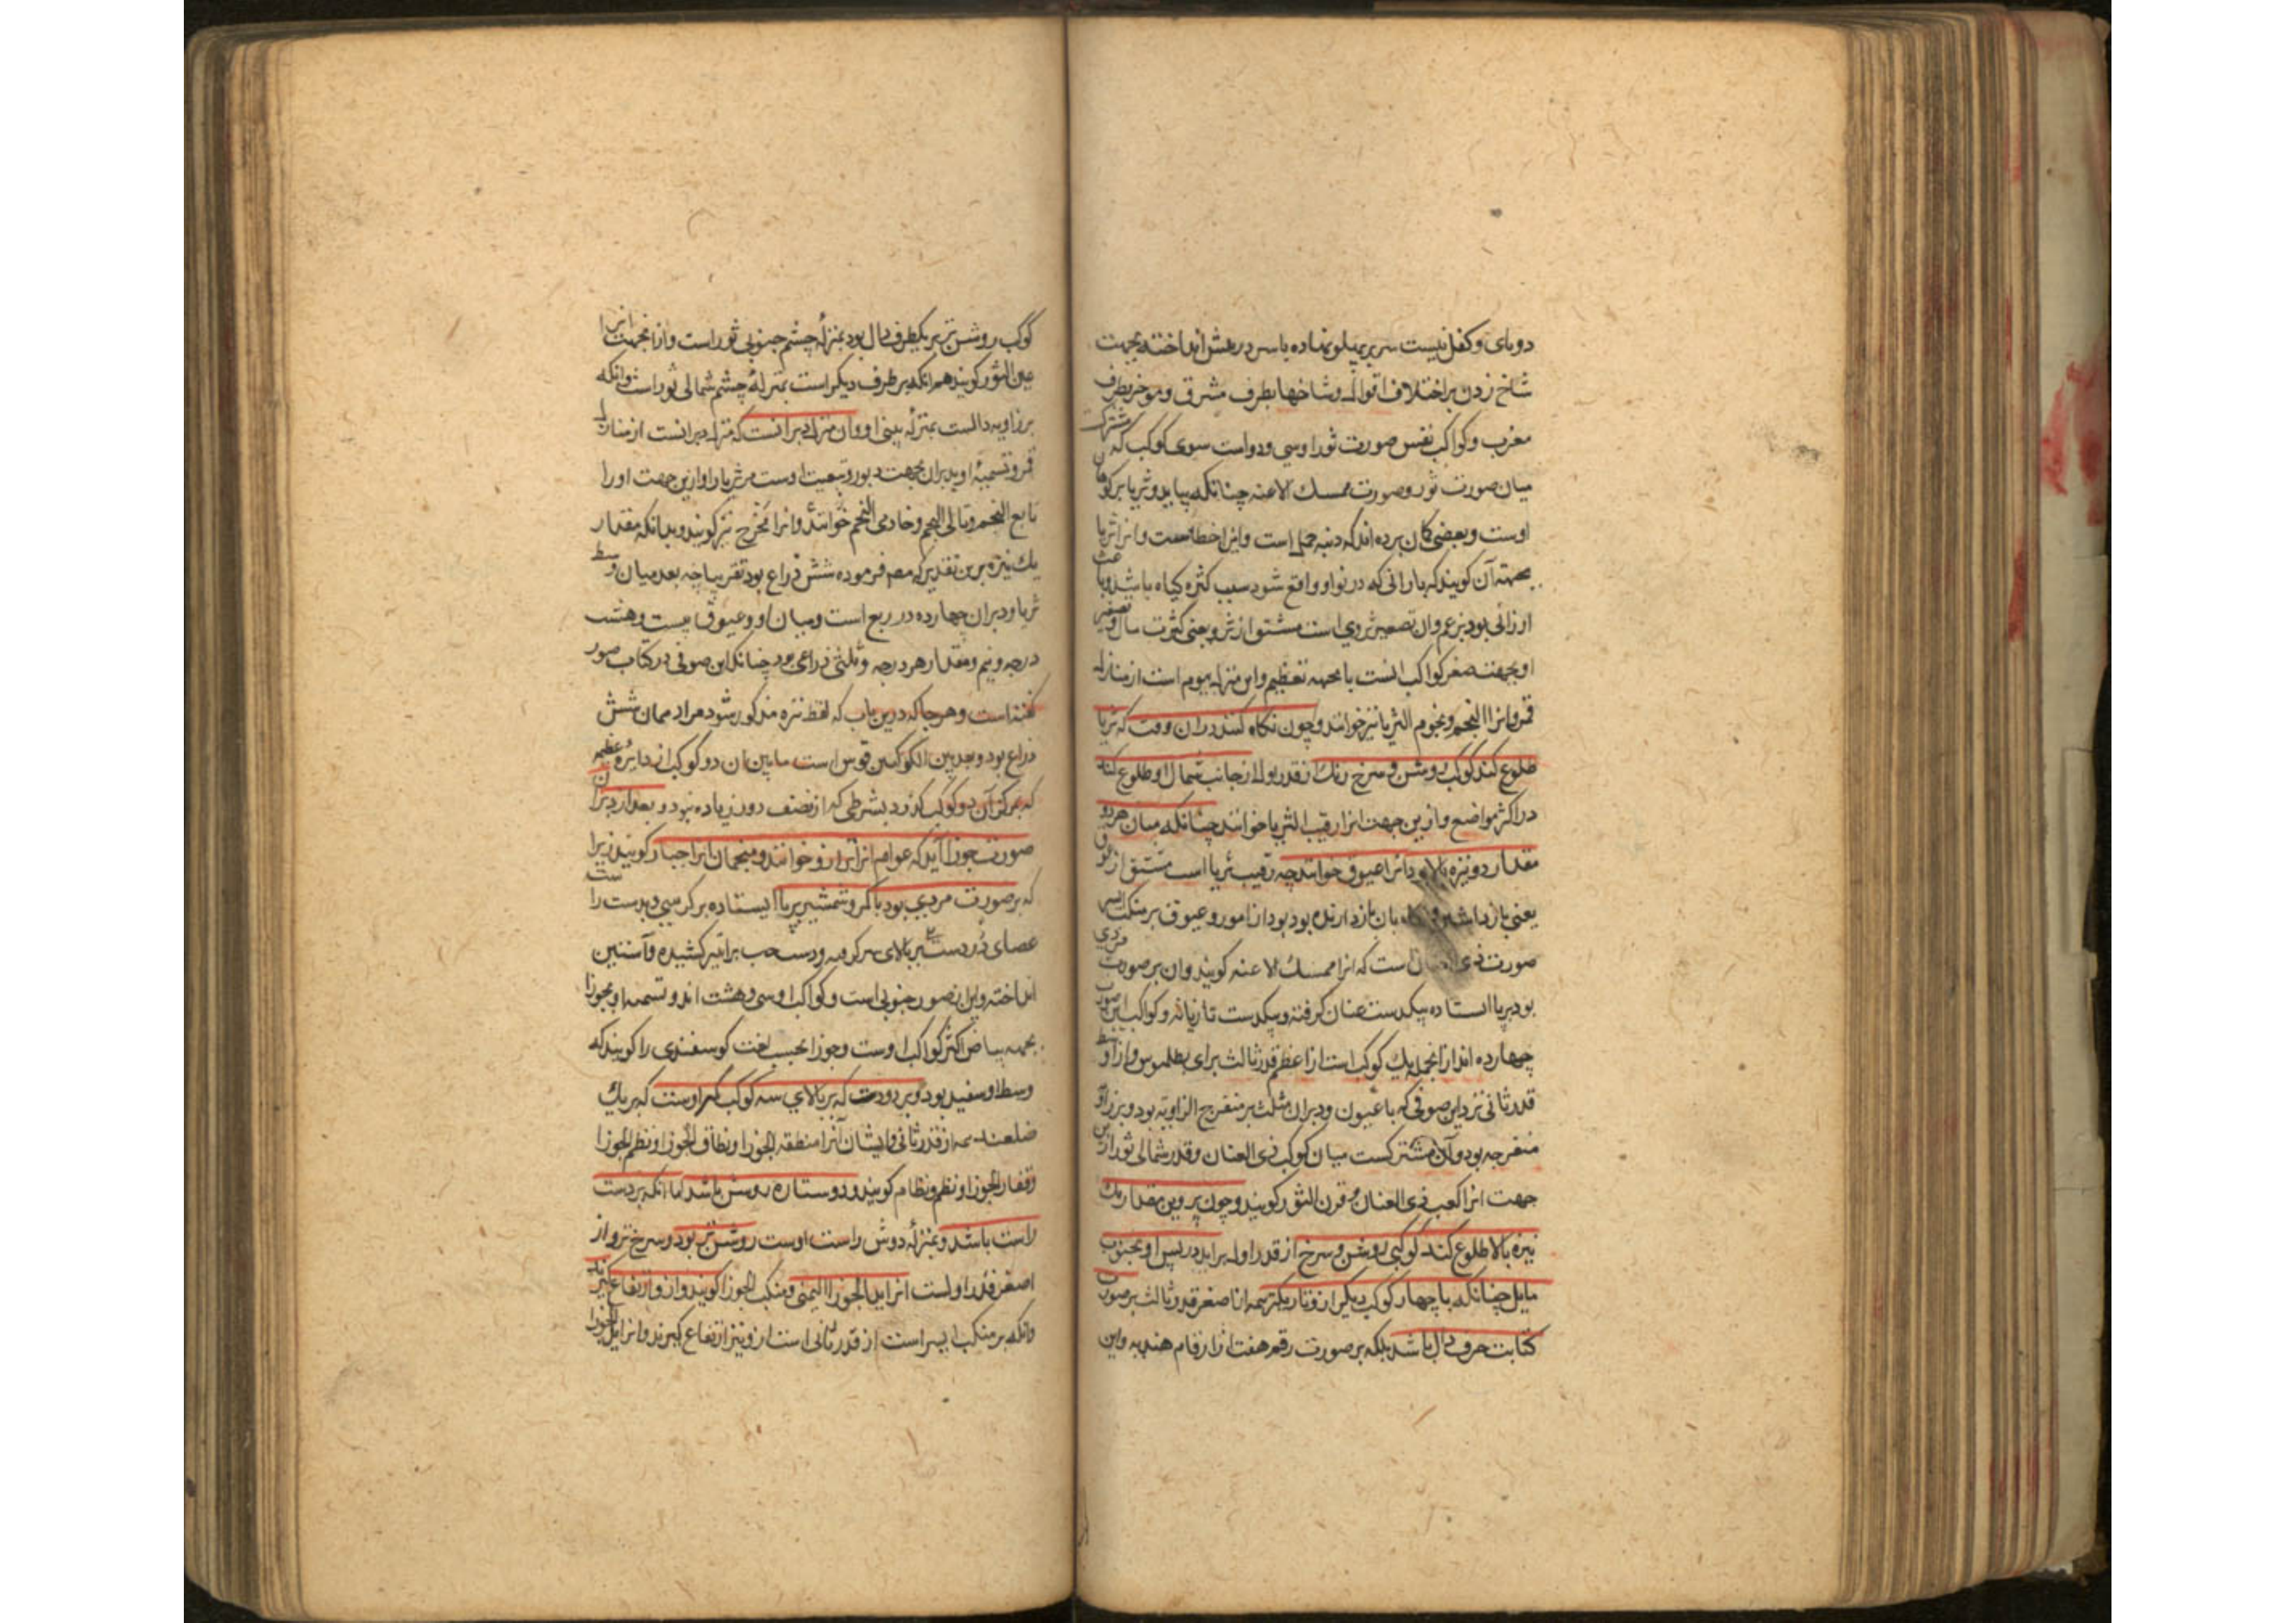 دو پای و کفل نیست سر بر پهلو نهاده یا سر در پیش انداخته بجهت
شاخ زدن بر اختلاف اقوال و شاخها بطرف مشرق و موخر بطرف
مغرب و کواکب نفس صورت ثور او سی و دو است سوی کوکب که مشترکست
میان صورت ثور و صورت ممسک الاعنه چنانکه بیاید و ثریا بر کوهان
اوست و بعضی کمان برده اند که دنبه حمل است و این خطاست و انرا ثریا
بجهته آن کویند که بارانی که در نواو واقع شود سبب کثرة کیاه باشد و باعث
ارزانی بود بزعم و ان تصغیر ثروی است مشتق از ثرو یعنی کثرت مال و تصغیر
او بجهت صغر کواکب انست یا بجهه تعظیم و این منزل سیوم است از منازل
قمر و انرا النجم و نجوم الثریا نیز خوانند و چون نکاه کنند در ان وقت که ثریا
طلوع کند کوکب روشن و سرخ رنک از قدر اول از جانب شمال او طلوع کند
در اکثر مواضع و ازین جهت انرا رقیب الثریا خوانند چنانکه میان هر دو
مقدار دو نیزه بالا بود انرا عیوق خوانند چه رقیب ثریا است مشتق از عوق
یعنی بازداشتن و بان بازدارنده بود از امور و عیوق بر منکب ایسر
صورت ذی العنان است که انرا ممسک الاعنه کویند و ان بر صورت مردی
بود بر پا ایستاده بیکدست عنان کرفته و بیکدست تازیانه و کواکب این صورت
چهارده اند از انجمله یک کوکب است از اعظم قدر ثالث برای بطلمیوس و از اوسط
قدر ثانی نزد ابن صوفی که با عیون و دبران مثلث بر منفرج الزاویه بود و بر زاویه
منفرجه بود و آن مشترکست میان کوکب ذی العنان و قدر شمالی ثور ازین
جهت انرا کعب ذی العنان و قرن الثور کویند و چون پروین مقدار یک
نیزه بالا طلوع کند کوکبی روشن و سرخ از قدر اول براید در پس او بجنوب
مایل چنانکه با چهار کوکب دیکر ازو تاریکتر همه از اصغر قدر ثالث بر صورت
کتابت حرف دال باشد بلکه بر صورت رقم هفت از ارقام هندیه و این
کوکب روشن تر بر یکطرف دال بود بمنزله چشم جنوبی ثور است و ازانجهت انرا
عین الثور کویند هم انکه بر طرف دیکر است بمنزله چشم شمالی ثور است و انکه
بر زاویه دالست بمنزله بینی او و ان منزل دبرانست که منزل دبرانست از منازل
قمر و تسمیه او بدبران بجهت دبور و تبعیت اوست مر ثریا را و ازین جهت او را
تابع النجم و تالی النجم و حادی النجم خوانند و انرا مجدح نیز کویند و بدانکه مقدار
یک نیزه برین تقدیر که مص فرموده شش ذراع بود تقریبا چه بعد میان وسط
ثریا و دبران چهارده درجه و ربع است و میان او و عیوق بیست و هشت
درجه و نیم و مقدار هر درجه و ثلثی ذراعی بود چنانکه ابن صوفی در کتاب صور
کفته است و هر جا که درین باب که لفظ نیزه مذکور شود مراد همان شش
ذراع بود و بعد بین الکوکبین قوس است ما بین ان دو کوکب از دایره عظیمه
که بمرکز آن دو کوکب کذرد بشرطی که از نصف دور زیاده نبود و بعد از دبران
صورت جوزا آید که عوام انرا ترازو خوانند و منجمان انرا جبار کویند زیرا
که بر صورت مردی بود با کمر و شمشیر بر پا ایستاده بر کرسی و بدست راست
عصای و دست بر بالای سر کرده و دست چپ برابر کشیده و آستین
انداخته و این از صور جنوبی است و کواکب او سی و هشت اند و تسمیه او بجوزا
بجهه بیاض اکثر کواکب اوست و جوزا بحسب لغت کوسفندی را کویند که
وسط او سفید بود و بر دو دست که بر بالای سه کوکب کمر اوست که بر یک
ضلعند همه از قدر ثانی و ایشان آنرا منطقه الجوزا و نطاق الجوزا و نظم الجوزا
و فقار الجوزا و نظم و نظام کویند و دو ستاره روشن باشد اما انکه بر دست
راست باشد و بمنزله دوش راست اوست روشن تر بود و سرخ تر و از
اصغر قدر اولست انرا ید الجوزا الیمنی و منکب الجوزا کویند و ازو ارتفاع کیرند
وانکه بر منکب ایسر است از قدر ثانی است ازو نیز ارتفاع کیرند و انرا ید الجوزا